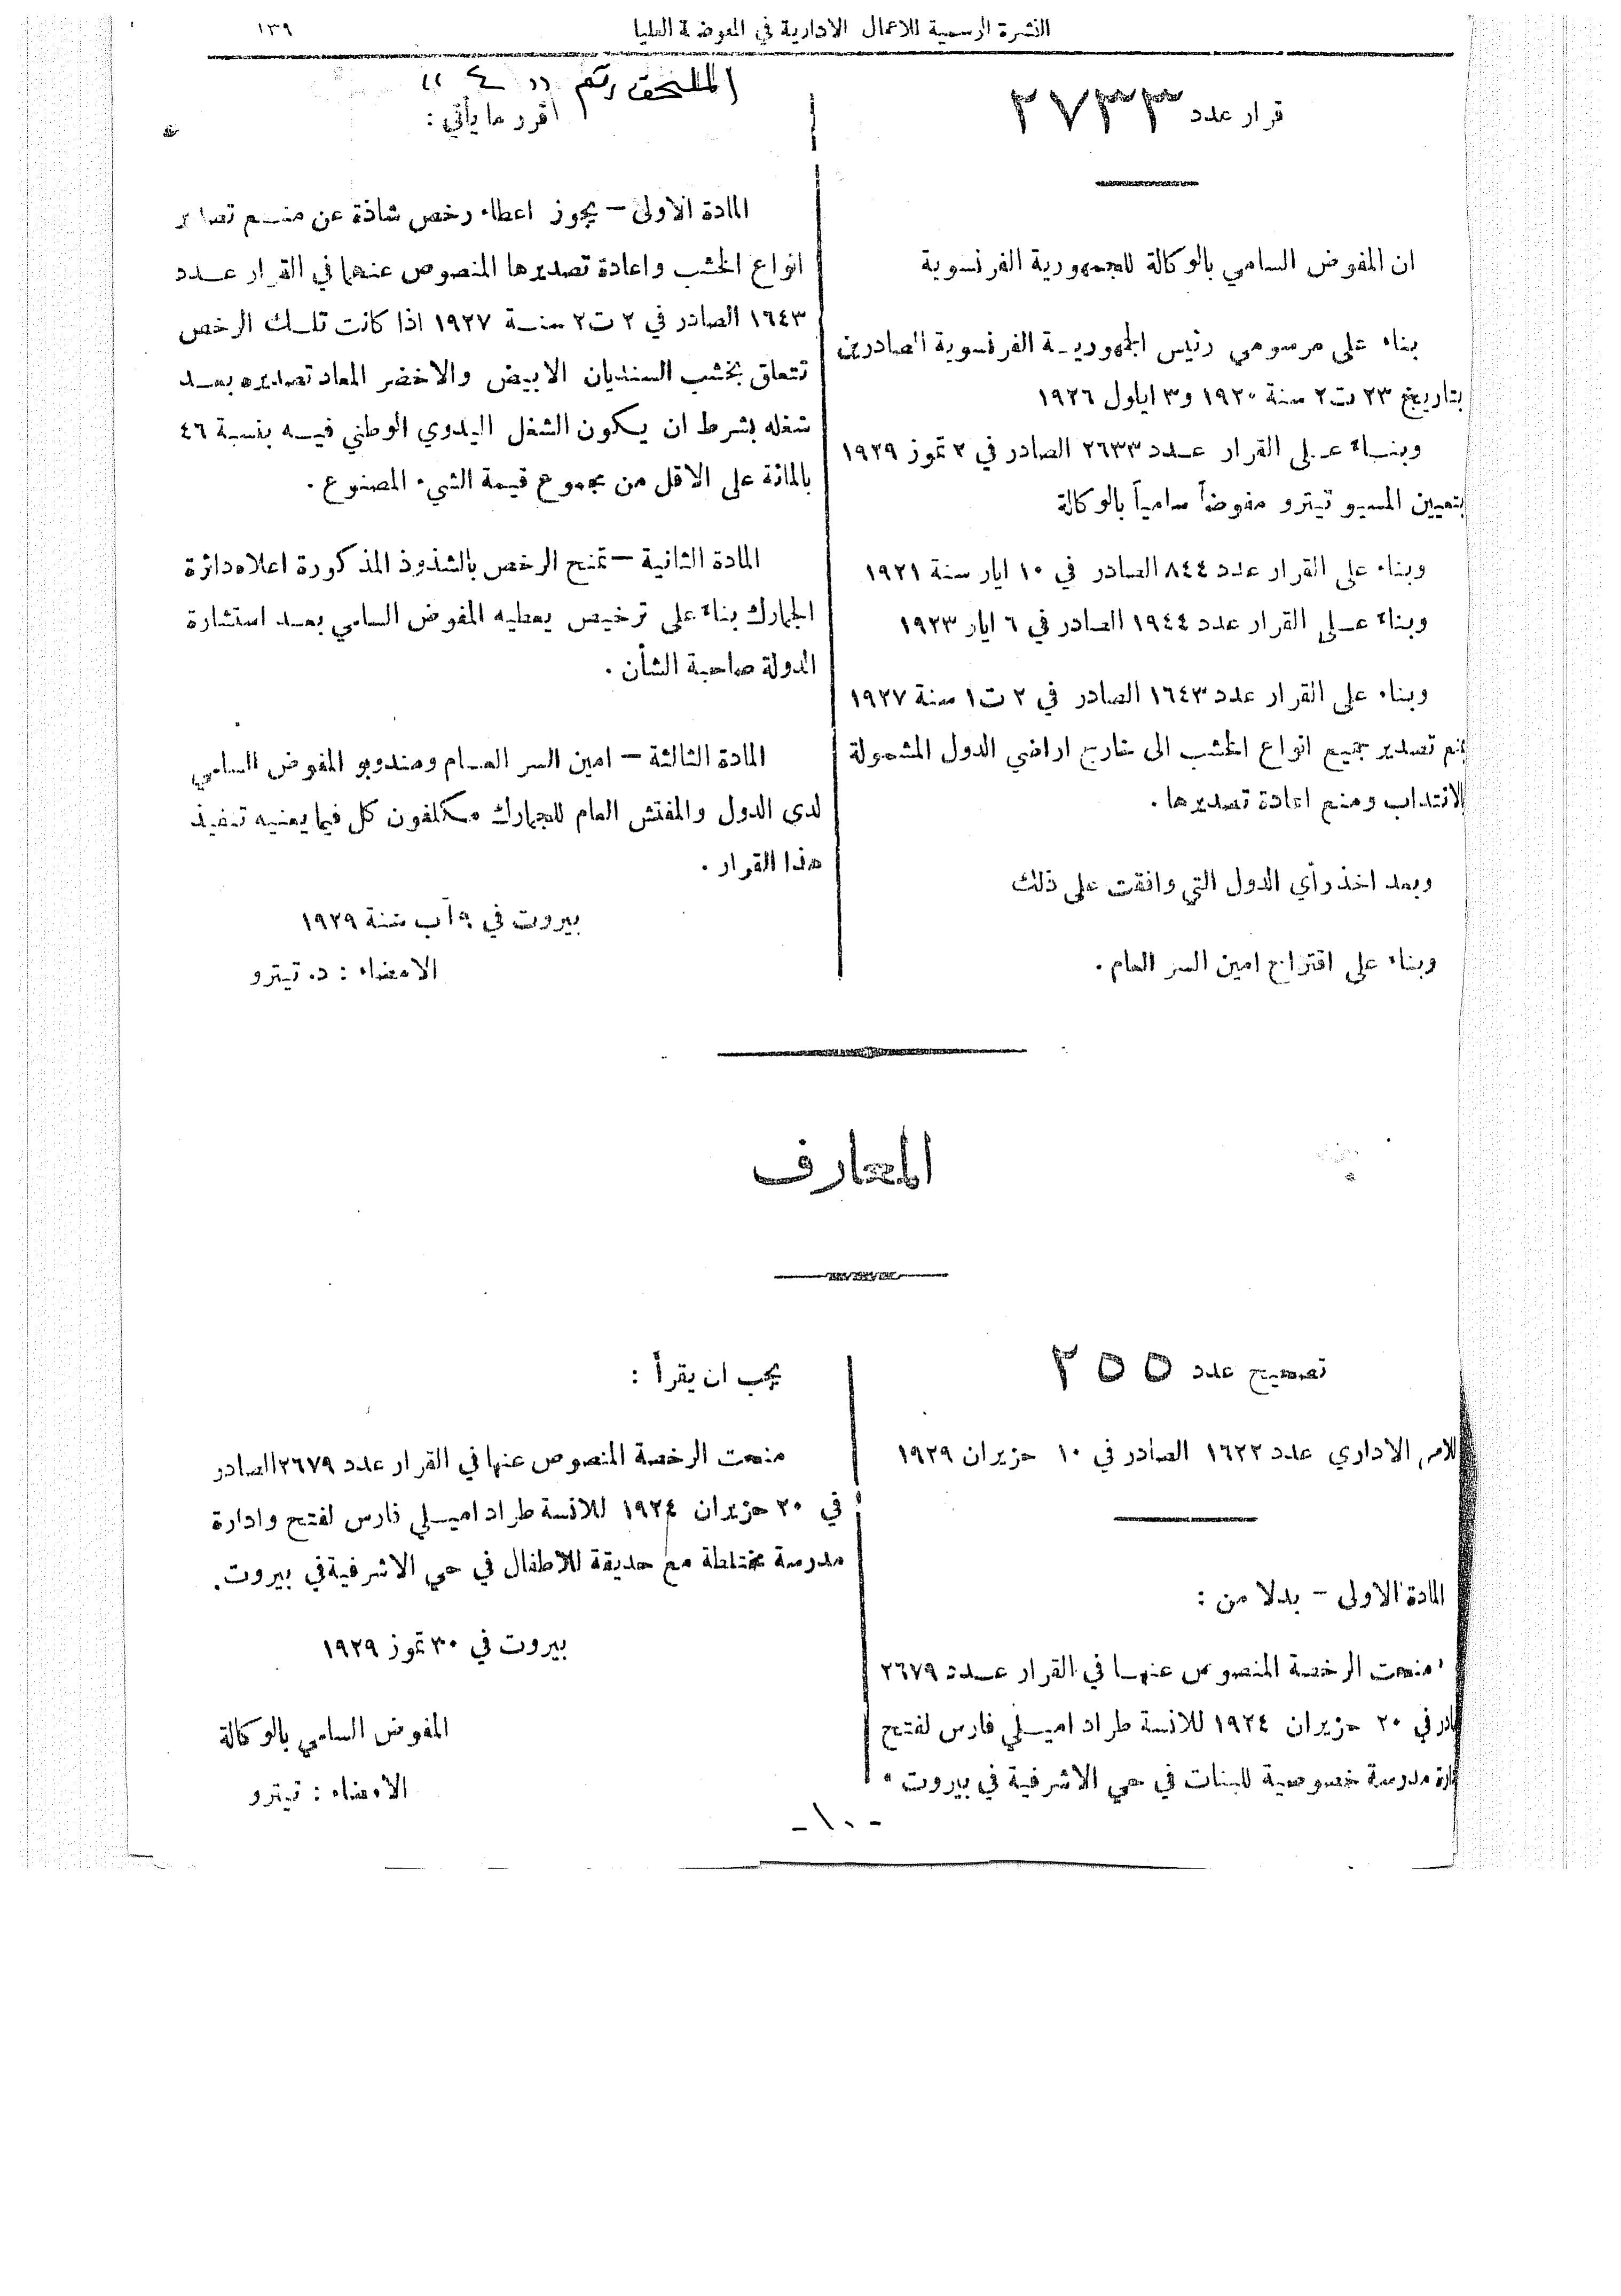 النشرة الرسمية للاعمال الادارية في المفوضية العليا
١٣٩
الملحق رقم « ٤ »
قرار عدد ٢٧٣٣
ان المفوض السامي بالوكالة للجمهورية الفرنسوية
بناء على مرسومي رئيس الجمهورية الفرنسوية الصادرين
بتاريخ ٢٣ ت٢ سنة ١٩٢٠ و٣ ايلول ١٩٢٦
وبناء على القرار عدد ٢٦٣٣ الصادر في ٢ تموز ١٩٢٩
بتعيين المسيو تيترو مفوضاً سامياً بالوكالة
وبناء على القرار عدد ٨٤٤ الصادر في ١٠ ايار سنة ١٩٢١
وبناء على القرار عدد ١٩٤٤ الصادر في ٦ ايار ١٩٢٣
وبناء على القرار عدد ١٦٤٣ الصادر في ٢ ت١ سنة ١٩٢٧
بمنع تصدير جميع انواع الخشب الى خارج اراضي الدول المشمولة
بالانتداب ومنع اعادة تصديرها .
وبعد اخذ رأي الدول التي وافقت على ذلك
وبناء على اقتراح امين السر العام .
اقرر ما يأتي :
المادة الاولى – يجوز اعطاء رخص شاذة عن منع تصدير
انواع الخشب واعادة تصديرها المنصوص عنهما في القرار عدد
١٦٤٣ الصادر في ٢ ت٢ سنة ١٩٢٧ اذا كانت تلك الرخص
تتعلق بخشب السنديان الابيض والاخضر المعاد تصديره بعد
شغله بشرط ان يكون الشغل اليدوي الوطني فيه بنسبة ٤٦
بالمائة على الاقل من مجموع قيمة الشيء المصنوع .
المادة الثانية – تمنح الرخص بالشذوذ المذكورة اعلاه دائرة
الجمارك بناء على ترخيص يعطيه المفوض السامي بعد استشارة
الدولة صاحبة الشأن .
المادة الثالثة – امين السر العام ومندوبو المفوض السامي
لدى الدول والمفتش العام للجمارك مكلفون كل فيما يعنيه تنفيذ
هذا القرار .
بيروت في ٩ آب سنة ١٩٢٩
الامضاء : د. تيترو
المعارف
تصحيح عدد ٢٥٥
للامر الاداري عدد ١٦٢٢ الصادر في ١٠ حزيران ١٩٢٩
المادة الاولى – بدلا من :
منحت الرخصة المنصوص عنها في القرار عدد ٢٦٧٩
الصادر في ٢٠ حزيران ١٩٢٤ للانسة طراد اميلي فارس لفتح
وادارة مدرسة خصوصية للبنات في حي الاشرفية في بيروت »
يجب ان يقرأ :
منحت الرخصة المنصوص عنها في القرار عدد ٢٦٧٩ الصادر
في ٢٠ حزيران ١٩٢٤ للانسة طراد اميلي فارس لفتح وادارة
مدرسة مختلطة مع حديقة للاطفال في حي الاشرفية في بيروت .
بيروت في ٣٠ تموز ١٩٢٩
المفوض السامي بالوكالة
الامضاء : تيترو
- ١٠ -